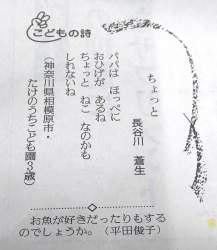 こどもの詩
ちょっと
長谷川 蒼生
パパは ほっぺに
おひげが あるね
ちょっと ねこ なのかも
しれないね
(神奈川県相模原市・
たけのうちこども園3歳)
お魚が好きだったりもする
のでしょうか。(平田俊子)